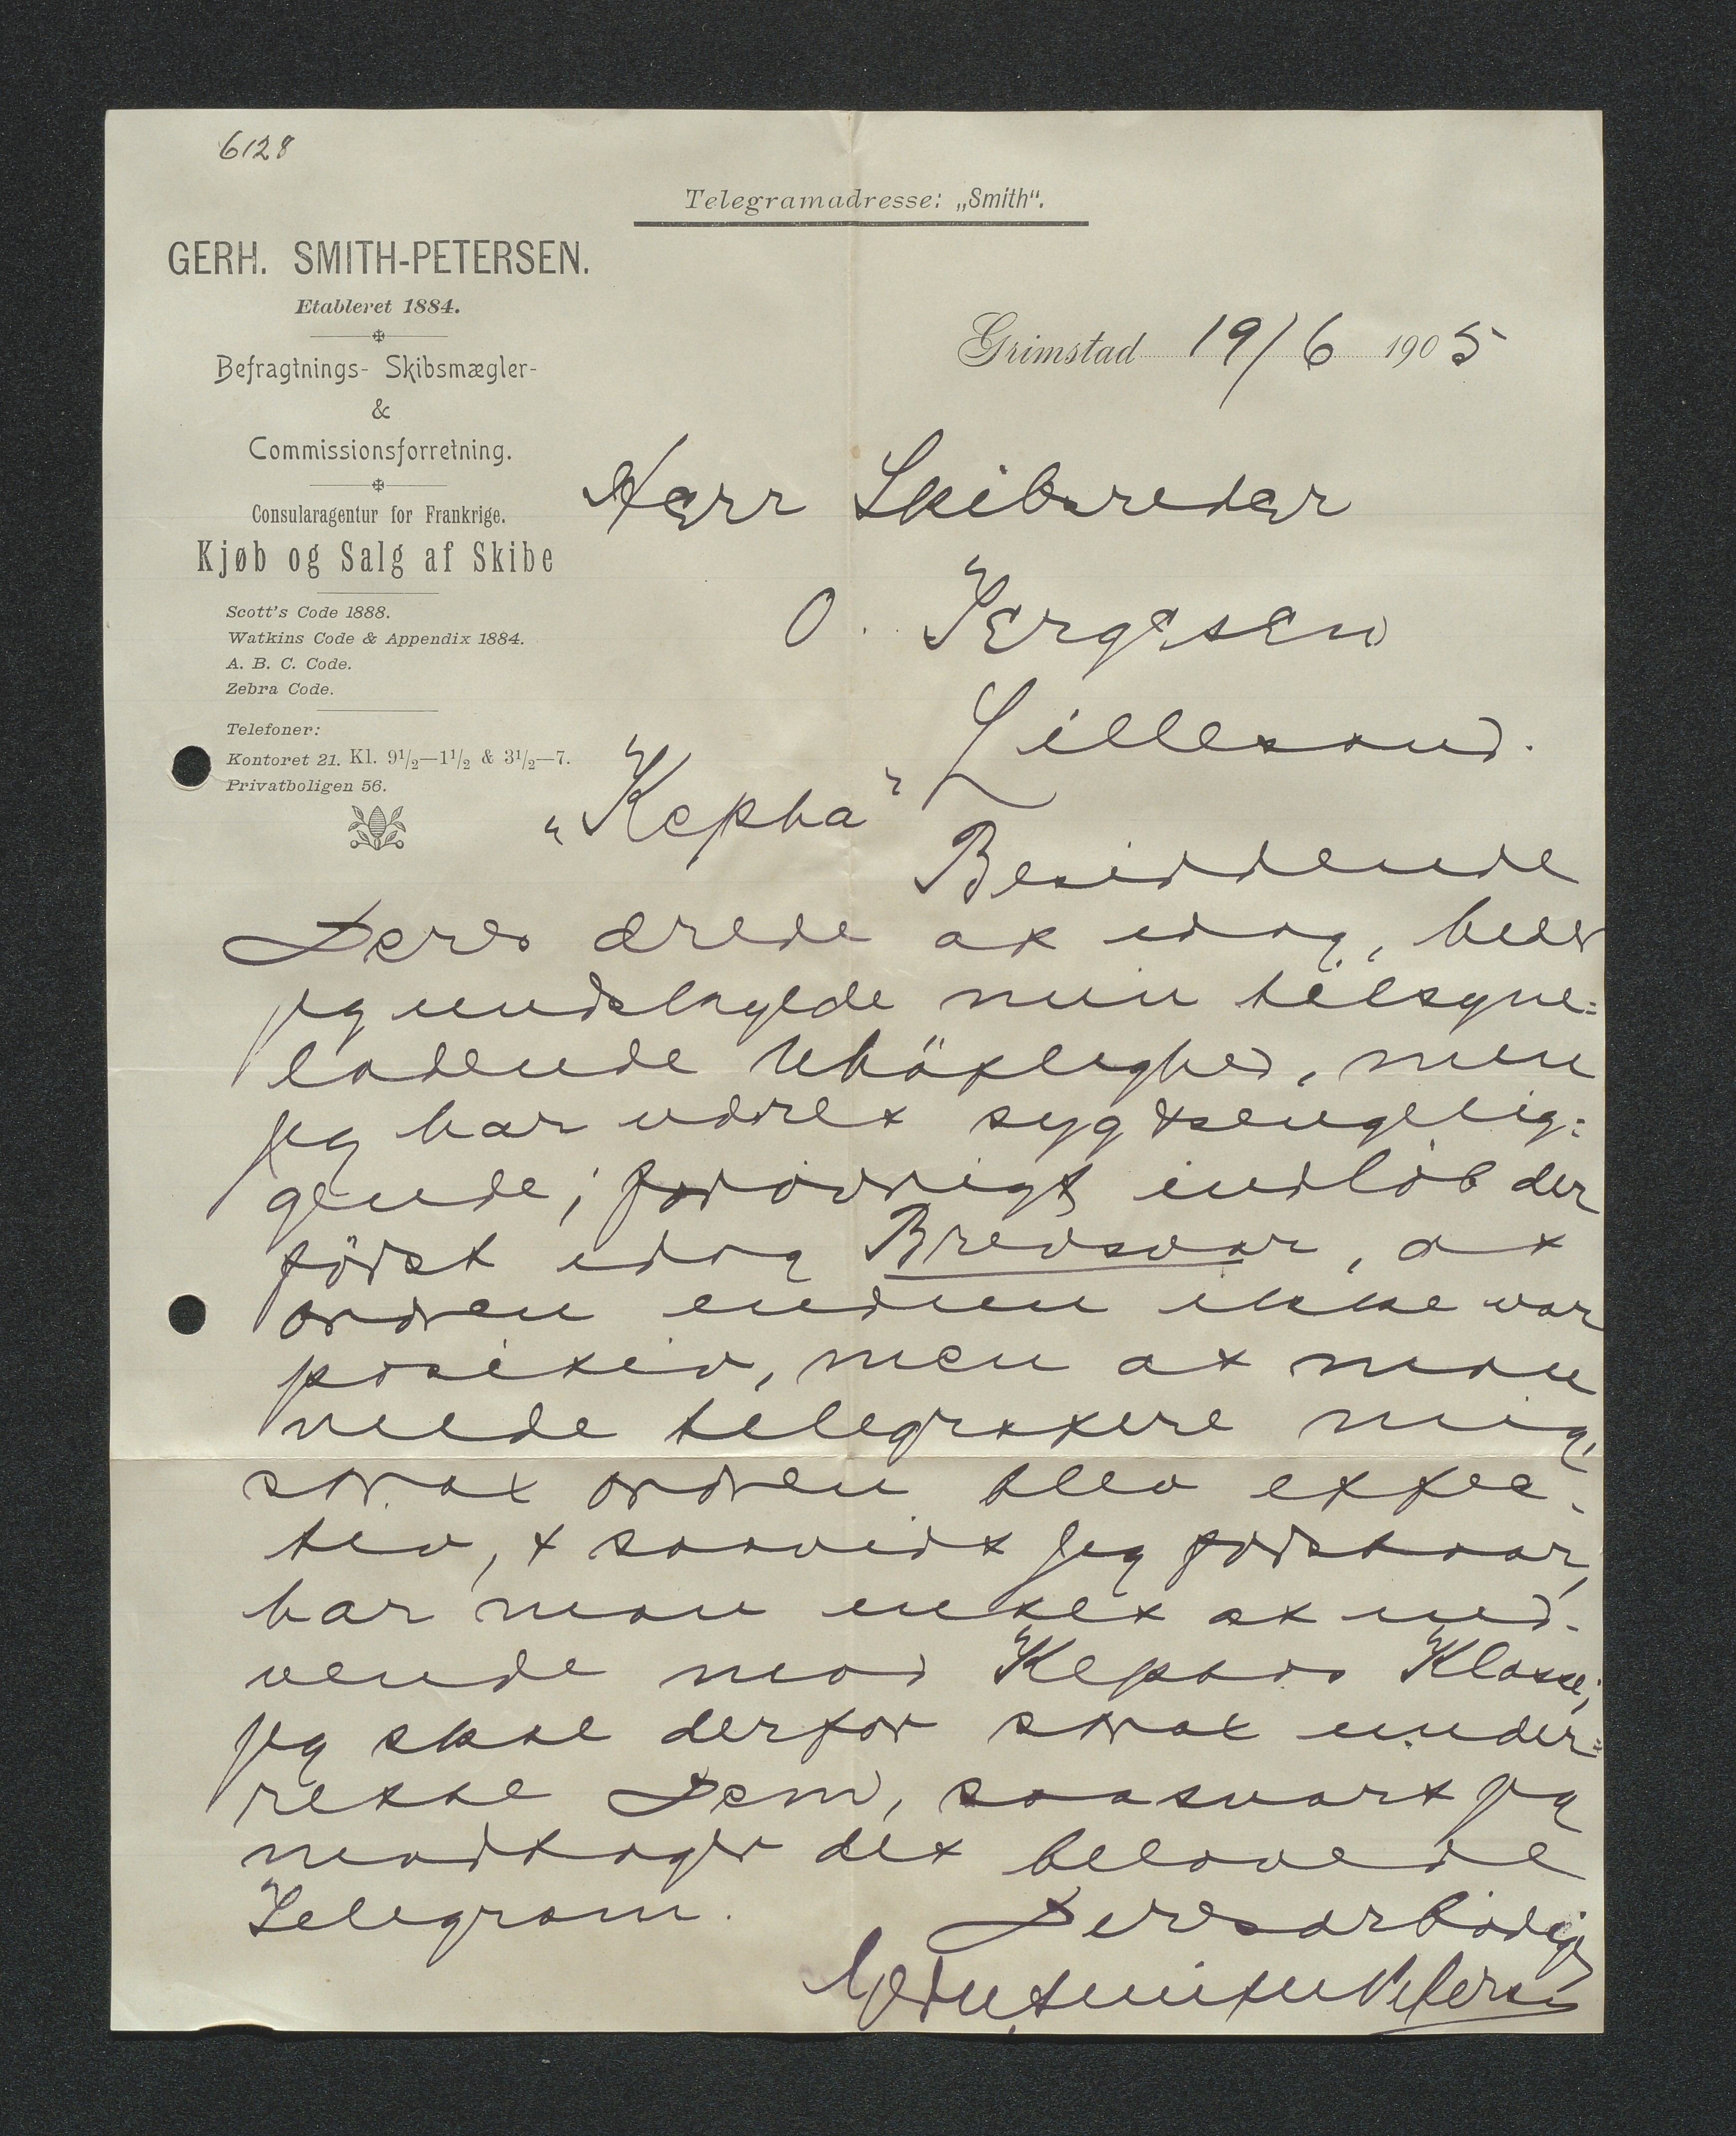 6128
Telegramadresse: „Smith“.
GERH. SMITH-PETERSEN.
Etableret 1884.
Befragtnings- Skibsmægler-
&
Commissionsforretning.
Consularagentur for Frankrige.
Kjøb og Salg af Skibe
Scott's Code 1888.
Watkins Code & Appendix 1884.
A. B. C. Code.
Zebra Code.
Telefoner:
Kontoret 21. Kl. 9½—1½ & 3½—7.
Privatboligen 56.
Grimstad 19/6 1905
Herr Skibsreder
O. Tergesen
Lillesand.
„Kepha”
Besiddende
Deres ærede af idag, beder
jeg undskylde min tilsyne=
ladende Uhöflighed, men
jeg har været syg & sengelig=
gende; forövrigt indlöb der
först idag Brevsvar, at
ordren endnu ikke var
positiv, men at man
vilde telegrafere mig,
strax ordren blev effec-
tiv, & saavidt jeg forstaar,
har man intet at ind-
vende mod Kephas Klasse;
jeg skal derfor strax under=
rette Dem, saasnart jeg
modtager det belovede
Telegram.
Deres ærbödige
Gerh Smith Petersen